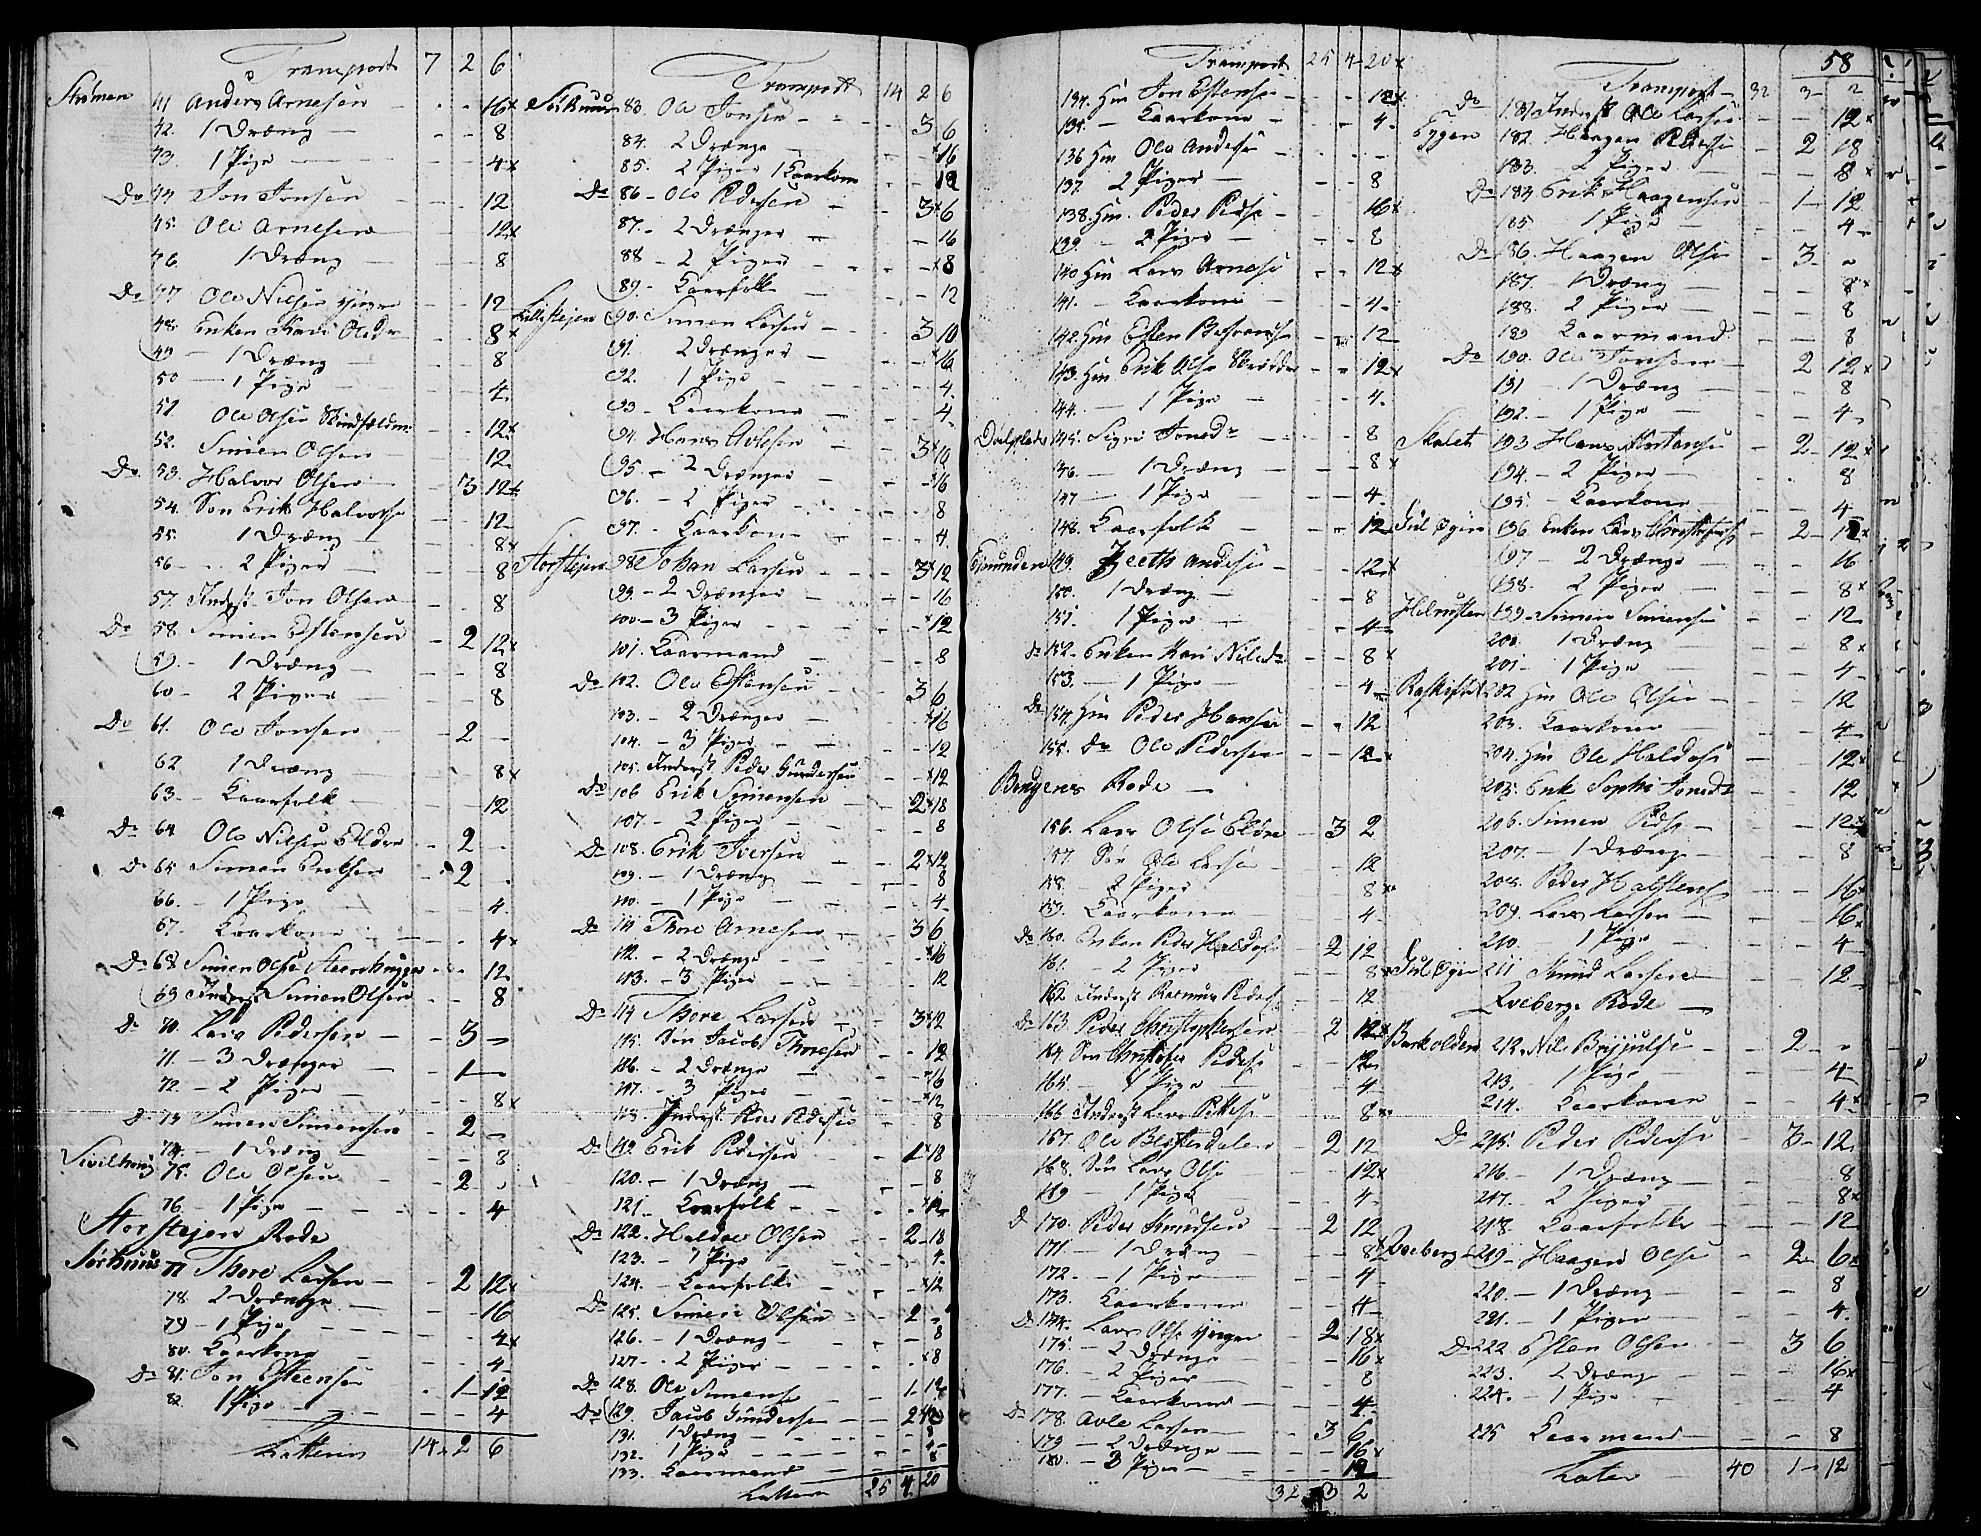 Transport 7 2 6
Strømen 41 Anders Arnesen - - 16x
42. 1 Dræng - - 8
43 1 Pige - - 4x
Do 44 Jon Jonsen - - 12
45. Ole Arnesen - - 12x
46. 1 Dræng - - 8
Do 47 Ole Nilsen yngre - - 12
48. Enken Kari Olsdr - - 8x
49 - 1 Dræng - - 8
50 - 1 Pige - - 4
51 Ole Olsen - - 12x
52. Simen Olsen - - 12
Do 53. Halvor Olsen - 3 12x
54. Søn Erik Halvors - - 12
55. 1 Dræng - - 8x
56 - 2 Piger - - 8
57. Inderst Jon Olsen - - 8
Do 58. Simen Estensen - 2 12x
59. - 1 Dræng - - 8
60 - 2 Piger - - 8
Do 61. Ole Jonsen - 2 -
62 1 Dræng - - 8x
63. - Kaarfolk - - 12
Do 64. Ole Nilsen Eldre - 2 -
Do 65 Simen Eriksen - 2 -
66. - 1 Pige - - 4
67. Kaarkone - - 4x
Do 68 Simen Olsen - - 12
69 Inderst Simen Olsen - - 8
Do 70. Lars Pedersen - 3 -
71. - 3 Drænger - 1 -
72. - 2 Piger - - 8x
Do 73 Simen Simensen - 2 -
74. - 1 Dræng - - 8
75. Ole Olsen - 2 -
76. - 1 Pige - - 4
Storstejen Rode
Sørhuus 77 Thore Larsen - 2 12x
78. 2 Drænge - - 16
79 - 1 Pige - - 4x
80. Kaarkone - - 4
Do 81. Jon Estensen - 1 12
82. 1 Pige - - 4
Latteris 14 2 6
Transport 14 2 6
Sørhuus 83. Ole Jonsen - 3 6
84. 2 Drænge - x16
85. 2 Piger 1 Kaarkone - - 12
Do 86 - Ole Pedersen - 3x 6
87. - 2 Drænger - - 16
88 - 2 Piger - - x8
89. - Kaarfolk - - 12
Lillestejen 90. Simen Larsen - 3 10
91. 2 Drænger - x16
92. 1 Pige - - 4
93 - Kaarkone - - 4
94. Hans Avlesen - 3x 10
95. - 2 Drænger - x16
96. - 2 Piger - - 8
97. - Kaarkone - - 4
Storstejen 98 Johan Larsen - 3x 12
99. - 2 Drænger - - 16
100 - 3 Piger - x12
101. Kaarmand - - 8
Do 102. Ole Estensen - 3 6
103. - 2 Drænger - x16
104. - 3 Piger - - 12
105. Inderst Peder Gundersen - x12
Do 106 Erik Simensen - 2x 18
107. - 2 Piger - - 8
Do 108. Erik Iversen - 2x 12
109. - 1 Dræng - - 8
110. - 1 Pige - - 4
Do 111 Thore Arnesen - 3 6
112. - 2 Drænge - x16
113. - 3 Piger - - 12
Do 114 Thore Larsen - 3x 12
115. Søn Jacob Thoresen - - 12
116. - 2 Drænge - - 16
117. - 3 Piger - x12
118. Inderst Peder Pedersen - - 8
Do 119. Erik Pedersen - 1x 18
120. - 1 Dræng - - 8
121. Kaarfolk - x12
Do 122. Haldoe Olsen - 2 18
123. - 1 Pige - - 4
124. - Kaarfolk - x12
Do 125. Simen Olsen - 2 -
126. - 1 Dræng - - 8
127 - 2 Piger - - x8
Do 128. Ole Simensen - 1 12
Do 129. Jacob Gundersen - 2
131. 1 Dræng - - 8
132. 1 Pige - -
133. Kaarmand - - 8
Latteris 25 4 20
Transport 25 4 20x
134. Hm Jon Estensen - - 12x
135. - Kaarkone - - 4
136 Hm Ole Andersen - - -
137. 2 Piger - - 8
138. Hm. Peder Pedse - - 16x
139 - 2 Piger - - 8
140 Hm Lars Arnese - - 12x
141. - Kaarkone - - 4
142. Hm Esten - - 12
143. Hm Erik Olse Skrædder - - 12x
144. - 1 Pige - - 4
145. Sigri Jonsdr - - 8
146. - 1 Dræng - - 8x
147 - 1 Pige - - 4
148. Kaarfolk - - 12
149. Andersen - - 12x
150. 1 Dræng - - 8
151. 1 Pige - - 4
Do 152 - Enken Kari Nilsdr - - 8x
153. - 1 Pige - - 4
Do 154. Hm Peder Hansen - - 12
155. Do Ole Pedersen - - 12x
Rode -
156. Lars Olse Eldre - 3 2
157. Søn Ole Larse - - 12
158. - 2 Piger - - 8x
159. Kaarkone - - 4
Do 160. Enken Peder Haldoes 2 12
161. - 2 Piger - - 8x
162 Inderst Rasmus Peders - - 12
Do 163. Peder Christophersen - 2 12x
164. Søn Christofer Peders - - 12
165. - 1 Pige - - 4
166 Inderst Lars - - 8x
167. Ole 2 12
168. Søn Lars Olse - - 12x
169 - 1 Pige - - 4
Do 170. Peder Amundsen - 2 12
171. - 1 Dræng - - 8x
172. - 1 Pige - - 4
173. Kaarkone - - 4
Do 174. Lars Olse yngre - 2 18x
175. - 2 Drænge - - 16x
176. - 2 Piger - - 8
177. - Kaarkone - - 4
Do 178. Avle Larsen - 3 6
179 - 2 Drænge - - 16x
180. - 3 Piger - - 12
32 3 2
58
Transport - 32 3 - 2
Do 181 Inderst Ole Larsen - - 12x
Eggen 182. Haagen Pederse - 2 18
183. 2 Piger - - 8x
Do 184 Erik Haagensen - 1 - 12
185. 1 Pige - - 4
Do 186. Haagen Olse - 3 -
187. - 1 Dræng - - 8x
188. 2 Piger - - 8
189 Kaarmand - - 8
Do 190. Ole Jonsen - 2 12x
191 - 1 Dræng - - 8
192. - 1 Pige - - 4
193 Hans - 2 - 12x
194. - 2 Piger - - 8
195. - Kaarkone - - 4
196. Enken Lars - 2 - 12x
197 - 2 Drænge - - 16
198. 2 Piger - - 8x
199 - Simen Simense - - 12
200. 1 Dræng - - 8x
201 - 1 Pige - - 4
202 Hm Ole Olsen - - 12
203. Kaarkone - - 4
204. Hm Ole Haldoes - - 12x
205. Enk Sophi Jonsdr - - 12
206. Simen Peds - - 12x
207. - 1 Dræng - - 8
208. Peder Halstens - - 16x
209. Lars Larsen - - 16x
210. 1 Pige - - 4
211 Amund Larsen - - 12
Rode -
212 Nils - 2 - -
213. 1 Pige - - 4
214. Kaarkone - - 4x
Do 215. Peder Pederse - 3 - 12
216. - 1 Dræng - - 8
217. - 2 Piger - - 8x
218. Kaarfolk - - 12
219 - Haagen Olse - 2 - 6x
220. - 1 Dræng - - 8
221. - 1 Pige - - 4
Do 222 Esten Olsen - 3 6
223. 2 Dræng - - 16x
224. - 1 Pige - - 4
225 Kaarmand - - 8
Later - 40 1 - 12